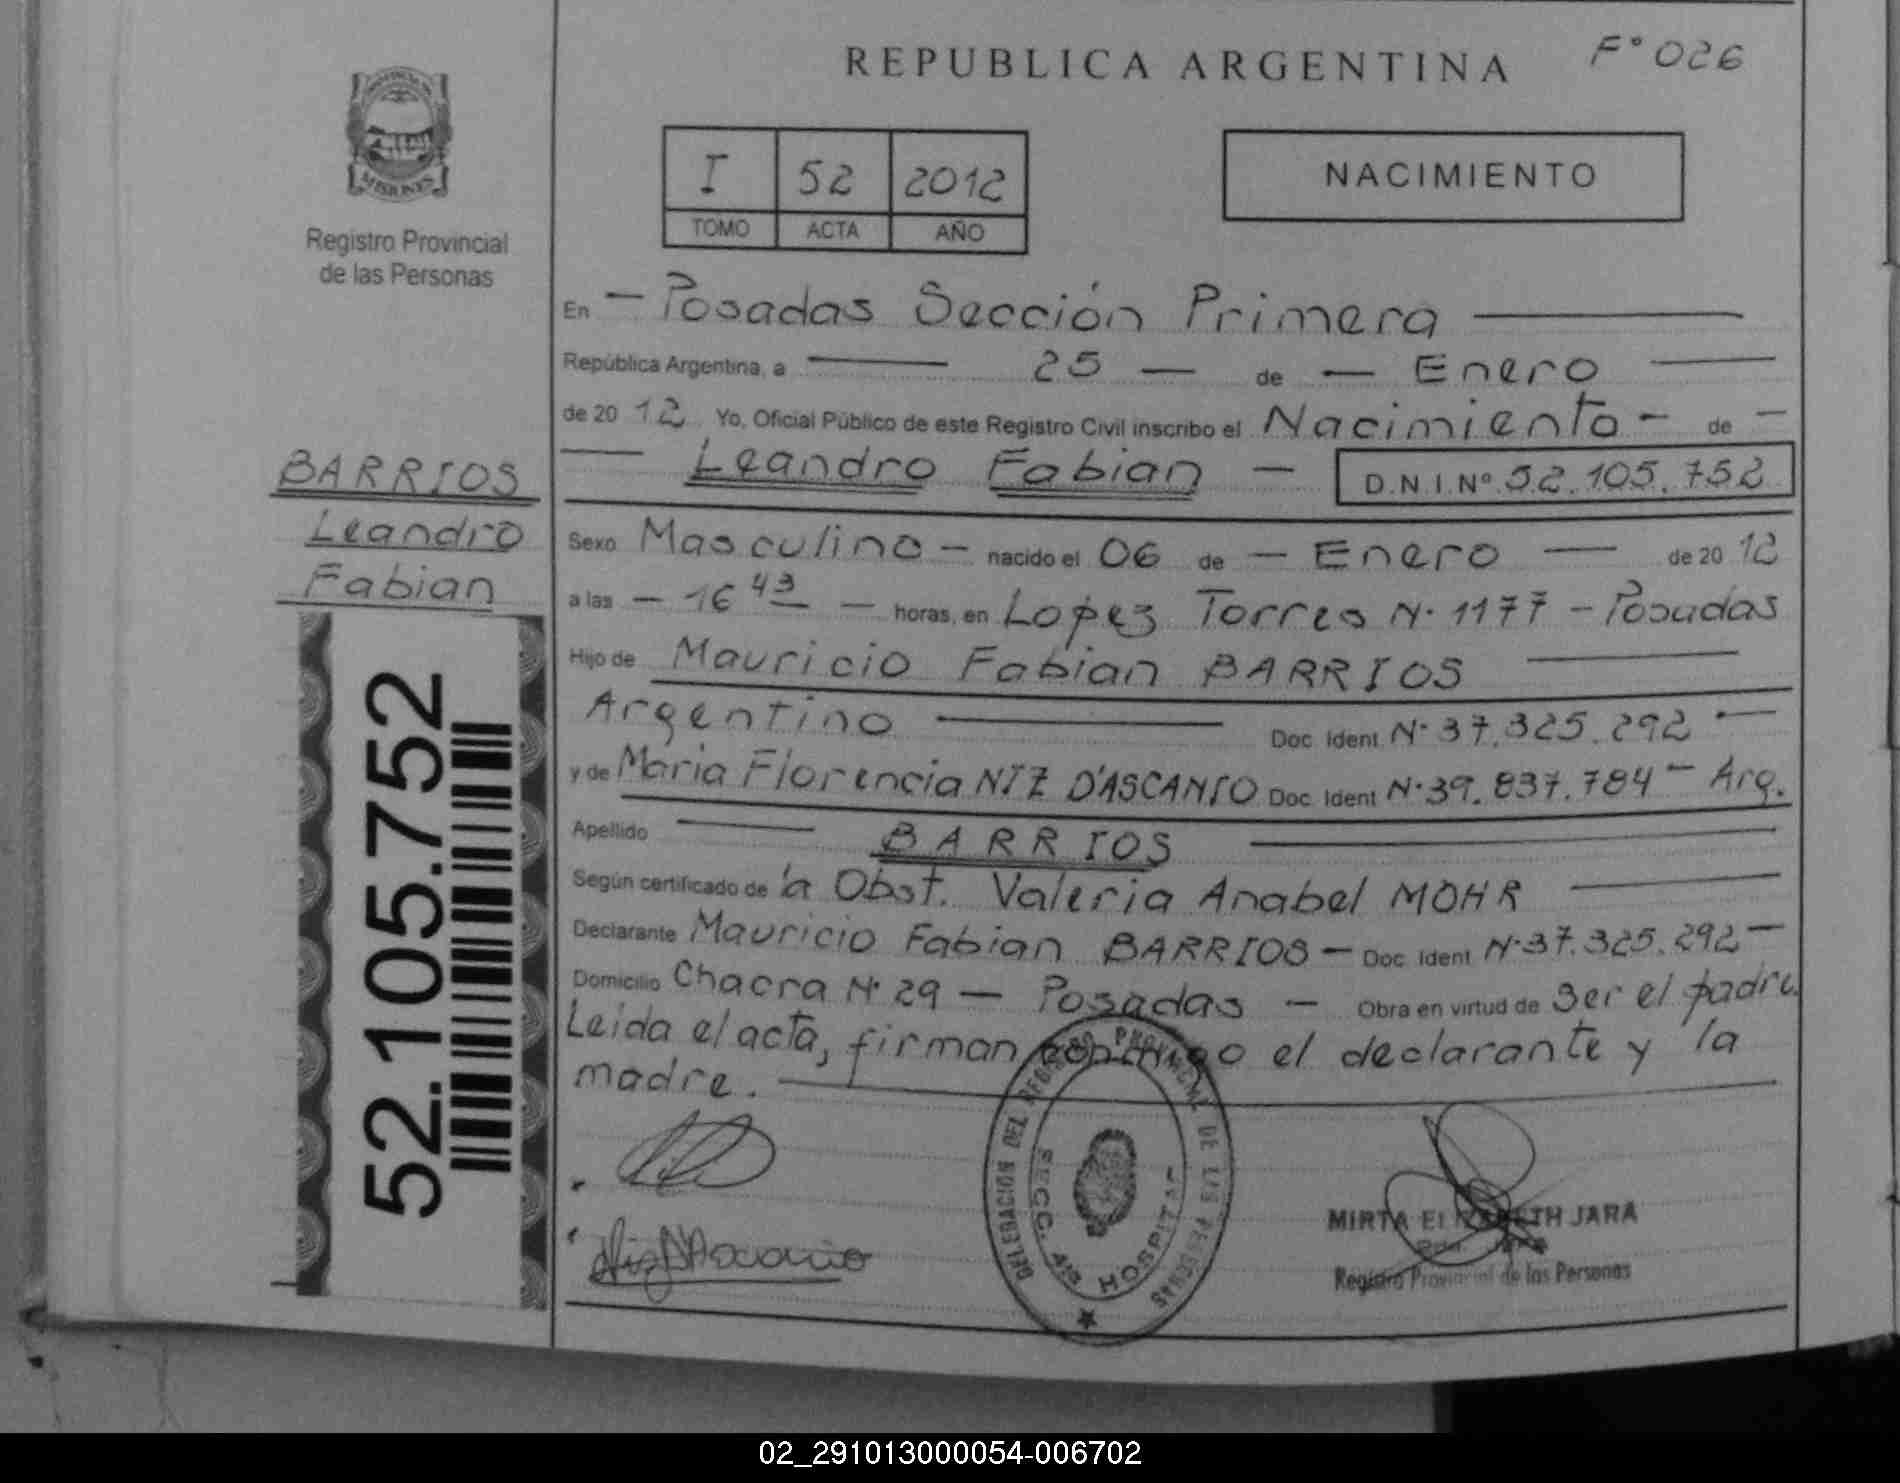 REPUBLICA ARGENTINA
F° 026
MISIONES
Registro Provincial
de las Personas
I 52 2012
TOMO ACTA AÑO
NACIMIENTO
En — Posadas Sección Primera —
República Argentina, a — 25 — de — Enero —
de 2012 Yo, Oficial Público de este Registro Civil inscribo el Nacimiento - de —
— Leandro Fabian — D.N.I.Nº 52.105.752
BARRIOS
Leandro
Fabian
Sexo Masculino — nacido el 06 de — Enero — de 2012
a las — 16 43 — horas, en Lopez Torres N° 1177 - Posadas
Hijo de Mauricio Fabian BARRIOS —
Argentino — Doc Ident N° 37.325.292 —
y de Maria Florencia NIZ D'ASCANIO Doc Ident N° 39.837.784 — Arg.
Apellido — BARRIOS —
Según certificado de la Obst. Valeria Anabel MOHR —
Declarante Mauricio Fabian BARRIOS — Doc Ident N° 37.325.292 —
Domicilio Chacra N° 29 — Posadas — Obra en virtud de ser el padre.
Leida el acta, firman conmigo el declarante y la
madre. —
52.105.752
DELEGACION DEL REGISTRO PROVINCIAL DE LAS PERSONAS
SECC. 4ta HOSPITAL
MIRTA ELIZABETH JARA
Registro Provincial de las Personas
02_291013000054-006702